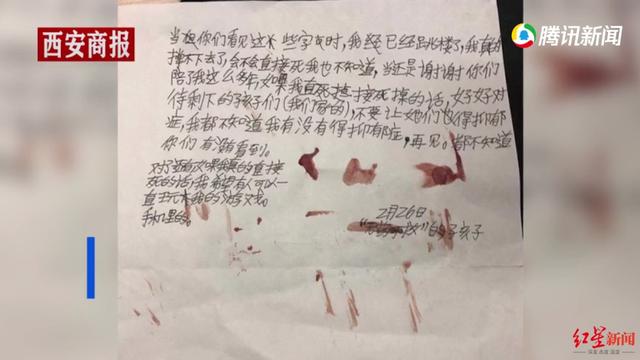 西安商报
腾讯新闻
当你们看见这些字时,我经已经跳楼了,我真的
撑不下去了,会不会直接死我也不知道,当还是谢谢你们
陪了我这么多年,如果我直接死掉的话,好好对
待剩下的孩子们(我们家的),不要让她们也得抑郁
症,我都不知道我有没有得抑郁症,再见。都不知道
你们有没有看到。
对了还有如果我真的直接
死的话,我希望有人可以一
直玩我的游戏。
手机里的。
2月26日
的孩子
红星新闻